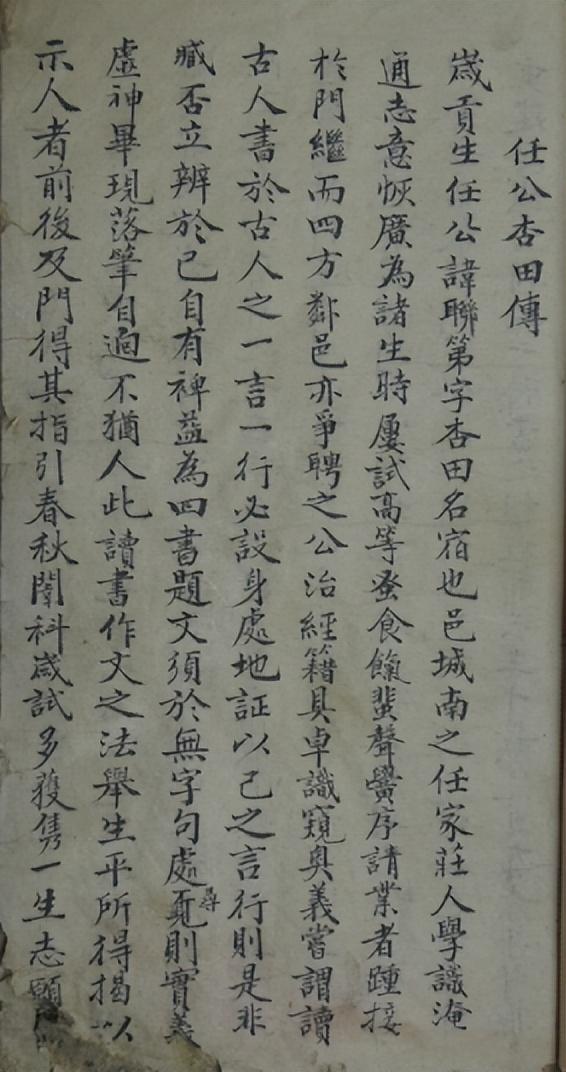 任公杏田傳
歲貢生任公諱聯第字杏田名宿也邑城南之任家莊人學識淹
通志意恢廣為諸生時屢試高等蚤食餼蜚聲黌序請業者踵接
於門繼而四方鄰邑亦爭聘之公治經籍具卓識窺奧義嘗謂讀
古人書於古人之一言一行必設身處地証以己之言行則是非
臧否立辨於己自有裨益為四書題文須於無字句處尋則實義
虛神畢現落筆自逈不猶人此讀書作文之法舉生平所得揭以
示人者前後及門得其指引春秋闈科歲試多獲雋一生志願